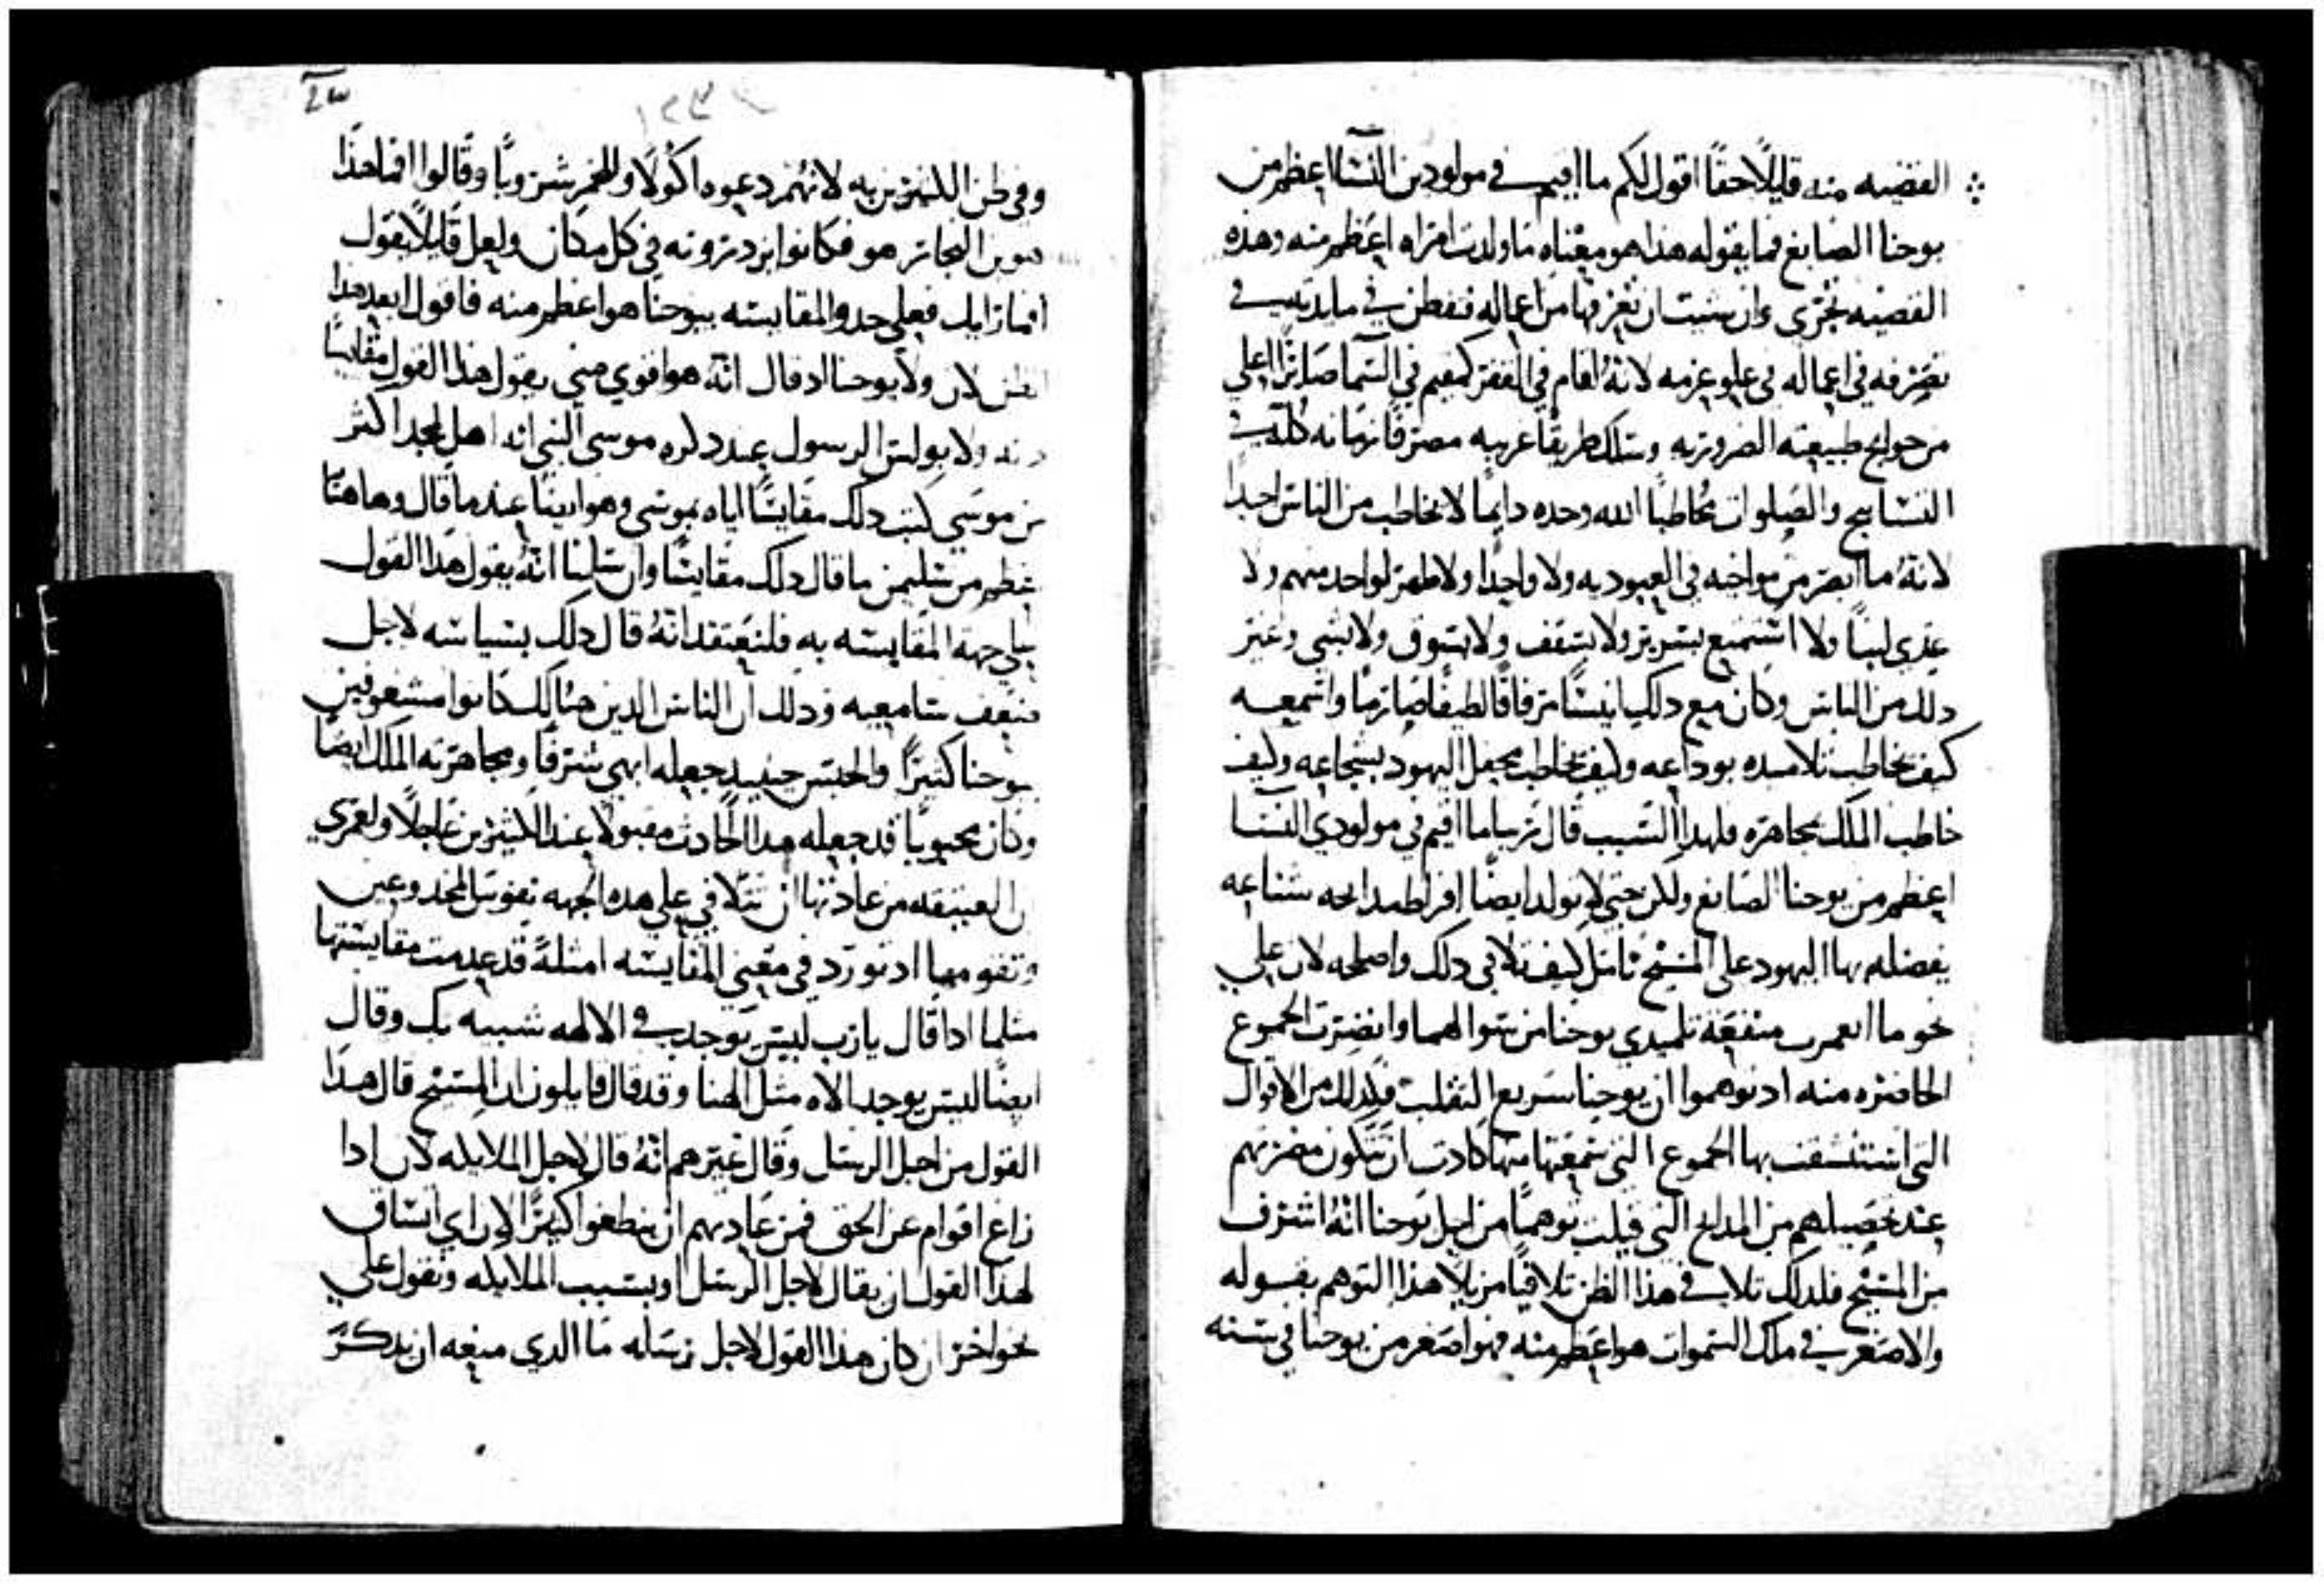 الفضيه منه قليلًا حقًا اقول لكم ما اقيم في مولودين النسا اعظم من
يوحنا الصابغ فما يقوله هذا هو معناه ما ولدت امراه اعظم منه وهذه
القضيه تجزي وان شيت ان تعرفها من اعماله فتفطن في مايدته في
تصرفه في اعماله في علو عزمه لانهُ اقام في القفر كمقيم في السما صايرًا اعلي
من حوايج طبيعته الضروريه وسلك طريقًا غريبه مصرفًا زمانه كله في
التسابيح والصلوات مخاطبًا الله وحده دايمًا لا يخاطب من الناس احدًا
لانهُ ما ابصر من مواخيه في العبوديه ولا واحدًا ولا ظهر لواحد منهم ولا
غدي لبنًا ولا استمتع بسرير ولا بسقف ولا بسوق ولا بشي وغير
دلك من الناس وكان مع دلك انيسًا مرفاقًا لطيفًا صارمًا واسمعه
كيف يخاطب تلاميده بوداعه وكيف يخاطب محفل اليهود بشجاعه وكيف
خاطب الملك مجاهره فلهدا السبب قال ربنا ما اقيم في مولودي النسا
اعظم من يوحنا الصابغ ولكن حتي لا يولد ايضًا افراط مدايحه شناعه
يفضله بها اليهود علي المسيح تامل كيف تلافي دلك واصلحه لان علي
نحو ما انعمرت منفعة تلميدي يوحنا من سوالهما وانضرت الجموع
الحاضره منه اد توهموا ان يوحنا سريع التقلب فكدلك من الاقوال
التي استنشقت بها الجموع التي سمعتها منها كادت ان تتكون مضرتهم
عند تحصيلهم من المدايح التي قيلت توهمًا من اجل يوحنا انهُ اشرف
من المسيح فلدلك تلافي هدا الظن تلافيًا مزيلًا هدا التوهم بقوله
والاصغر في ملك السموات هو اعظم منه فهو اصغر من يوحنا في سنه
وفي ظن الكثيرين به لانهُم دعوه اكولًا وللخمر شروبًا وقالوا افما هدا
هو بن النجار هو فكانوا يزدرونه في كل مكان ولعل قايلًا يقول
افما رايك فعلي حد والمقايسه بيوحنا هو اعظم منه فاقول ابعد هدا
الظن لان ولا يوحنا اد قال انهُ هو اقوي مني يقول هدا القول مقايسًا
ولا بولس الرسول عند دكره موسي النبي انه اهل لمجد اكثر
من موسي كتب دلك مقايسًا اياه بموسي وهو ايضًا عند ما قال وهاهنا
اعظم من سليمن ما قال دلك مقايسًا وان سلمنا انهُ يقول هدا القول
علي جهة المقايسه به فلنعتقد انهُ قال دلك بسياسه لاجل
ضعف سامعيه ودلك ان الناس الدين هنالك كانوا مشغوفين
بيوحنا كثيرًا والحبس حينيد جعله ابهي شرفًا ومجاهرته الملك ايضًا
وكان محبوبًا قد جعله هدا الحادث مقبولًا عند الكثيرين عاجلًا ولعمري
ان العتيقه من عادتها ان تتلافي علي هده الجهه نفوس المخدوعين
وتقومها اد تورد في معني المقايسه امثلةً قد عدمت مقايستها
مثلما ادا قال يارب ليس يوجد في الالهه شبيه بك وقال
ايضًا ليس يوجد الاه مثل الهنا وقد قال قايلون ان المسيح قال هدا
القول من اجل الرسل وقال غيرهم انهُ قال لاجل الملايكه لان ادا
زاغ اقوام عن الحق فمن عادتهم ان يضطغوا كثيرًا لان اي اتساق
لهدا القول ان يقال لاجل الرسل او بسبب الملايكه ونقول علي
نحو اخر ان كان هدا القول لاجل رسله ما الدي منعه ان يدكر